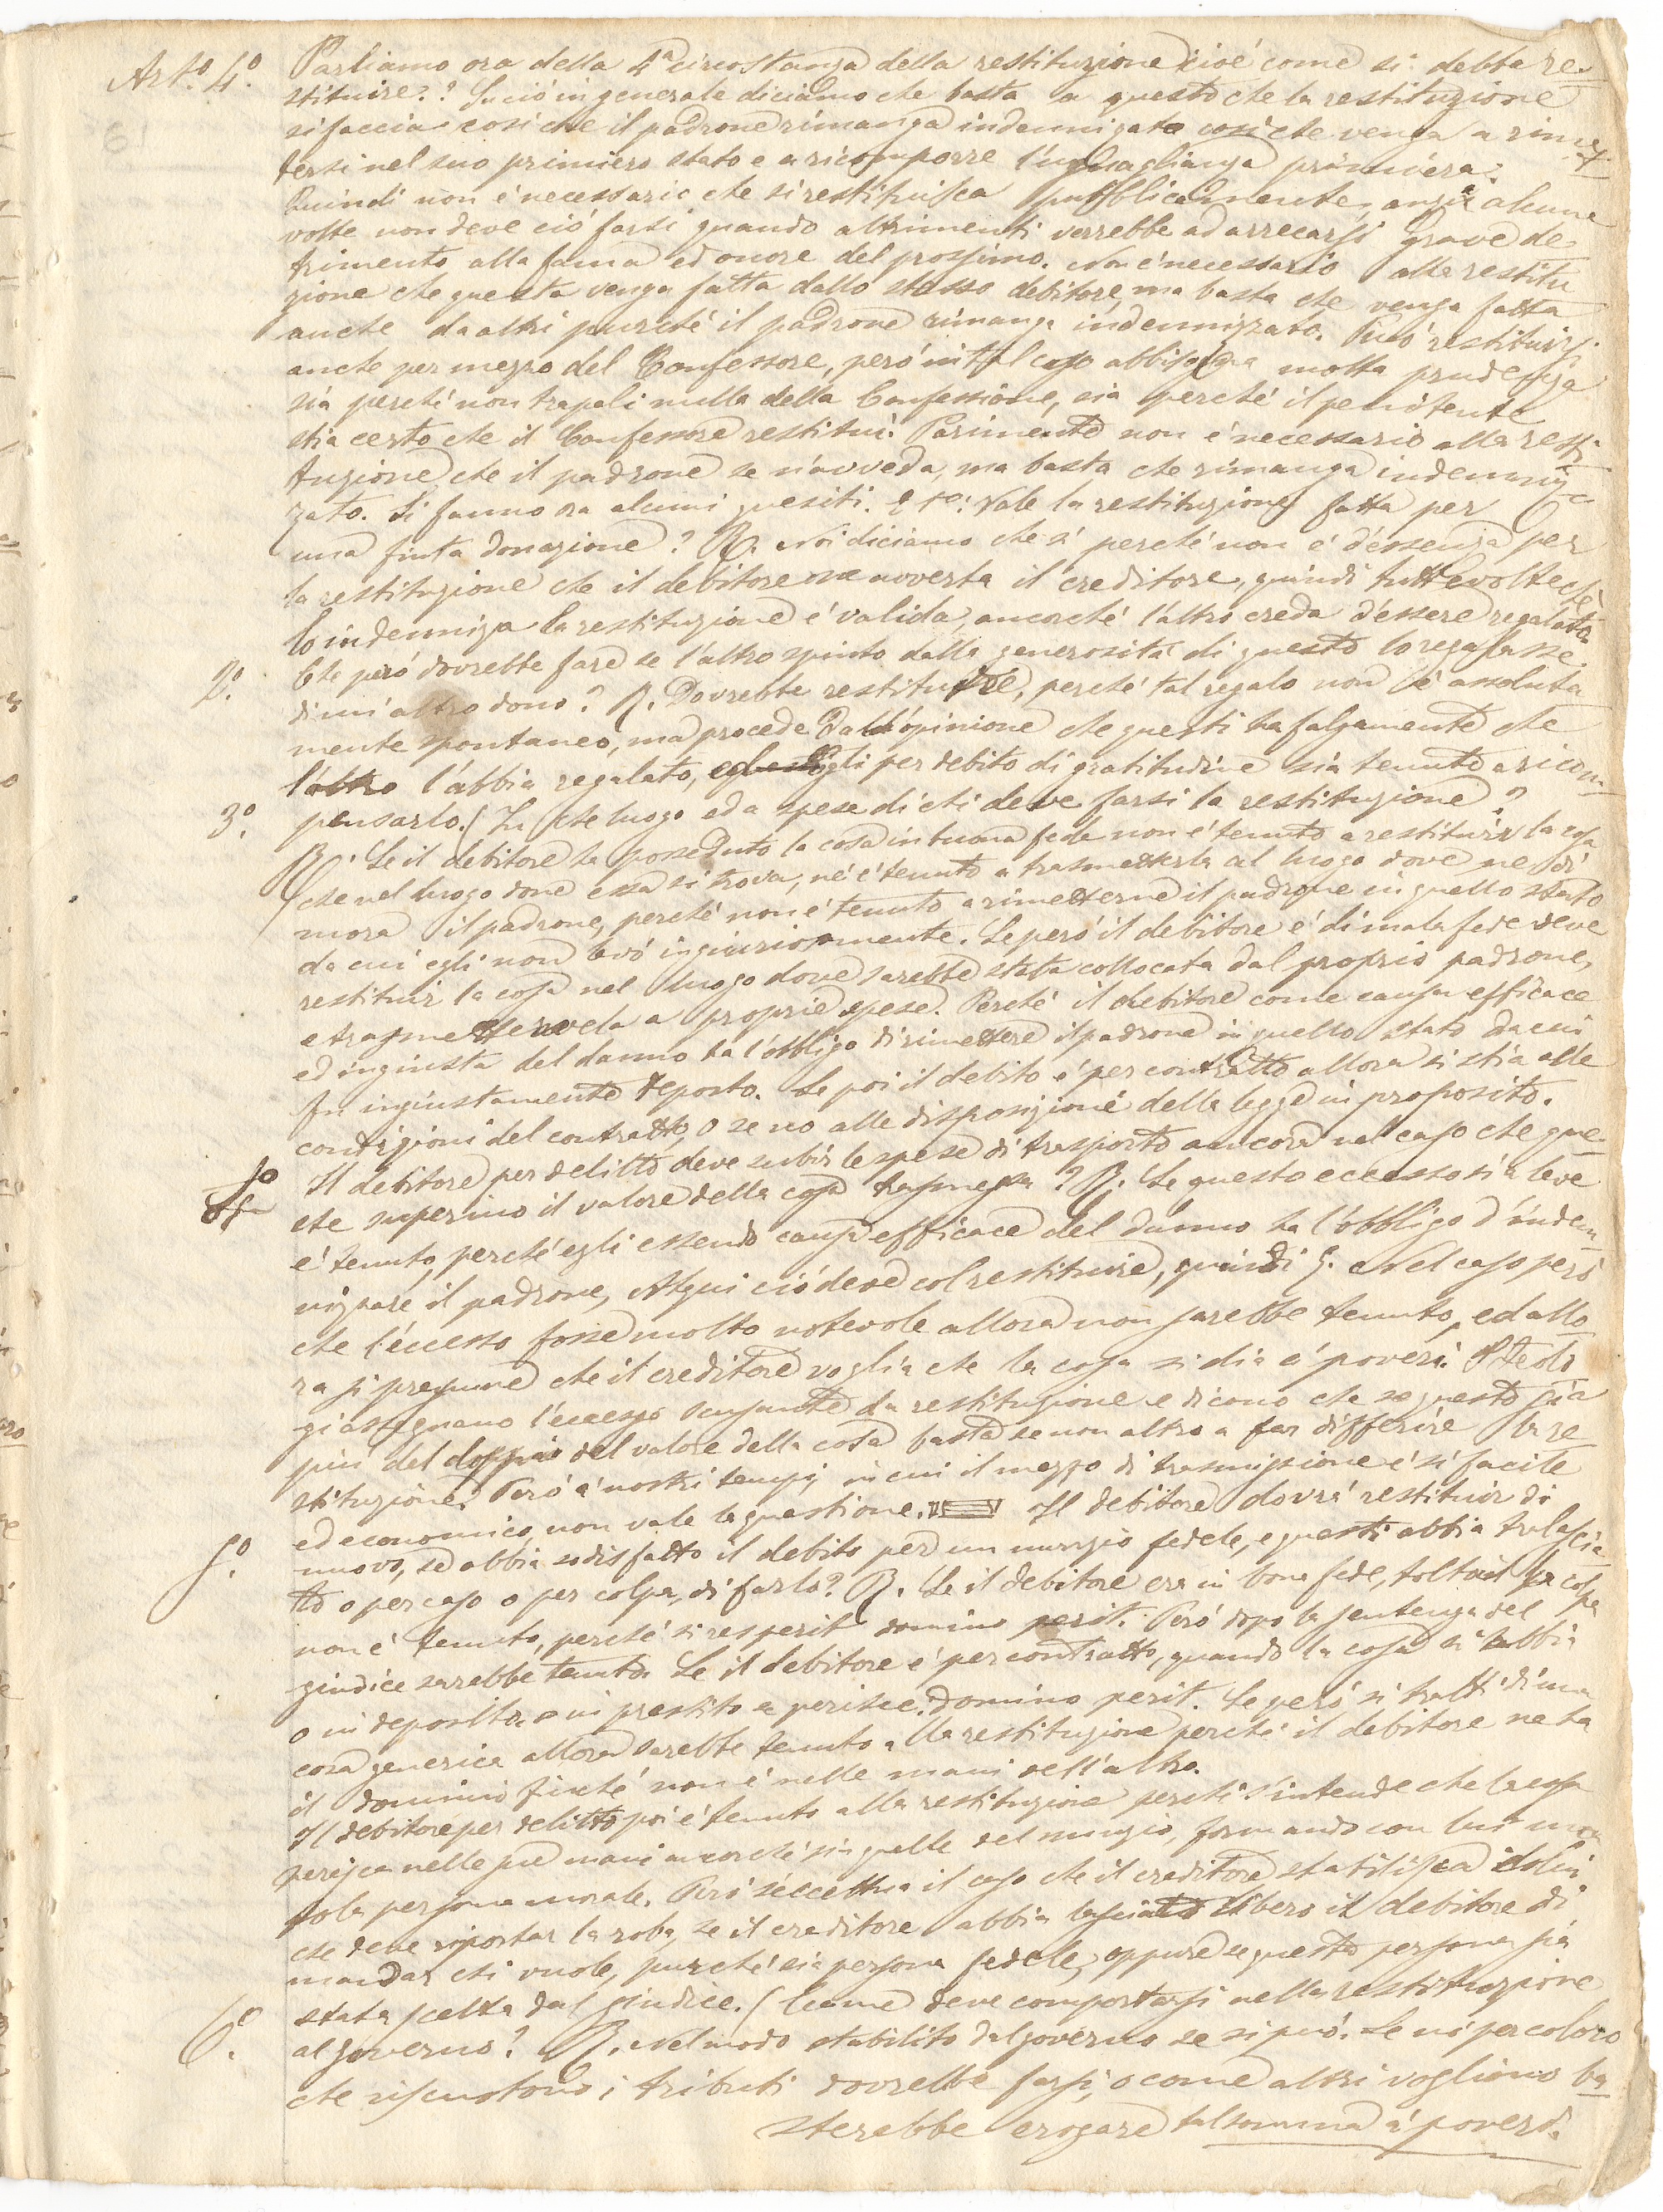 Art.o 4.o Parliamo ora della 4a circostanza della restituzione cioé come si debba re-
stituire.? Su ció in generale diciamo che basta a questo che la restituzione
si faccia cosi che il padrone rimanga indennizato cosi che venga a rimet-
tersi nel suo primiero stato e a ricomporre l'uguaglianza primiera.
Quindi non é necessario che si restituisca pubblicamente, anzi alcune
volte non deve ció farsi quando altrimenti verrebbe ad arrecarsi grave de-
trimento alla fama ed onore del prossimo. Non é necessario alla restitu
zione che questa venga fatta dallo stesso debitore, ma basta che venga fatta
anche da altri purché il padrone rimanga indennizzato. Puó restituirsi
anche per mezzo del Confessore, peró in tal caso abbisogna molta prudenza
sia perché non trapeli nulla della Confessione, sia perché il penitente
stia certo che il Confessore restitui. Parimente non é necessario alla resti
tuzione che il padrone se n'avveda, ma basta che rimanga indenniz-
zato. Si fanno ora alcuni quesiti. E 1o: Vale la restituzione fatta per
una finta donazione? R. Noi diciamo che si perché non é d'essenza per
la restituzione che il debitore ne avverta il creditore, quindi tuttevolte ché
lo indenniza la restituzione é valida, ancorché l'altro creda d'essere regalato.
2.o Che peró dovrebbe fare se l'altro spinto dalla generositá di questo lo regalasse
di un altro dono? R. Dovrebbe restituire, perché tal regalo non é assoluta
mente spontaneo, ma procede dall'opinione che questi ha falsamente che
l'altro l'abbia regalato, egli per debito di gratitudine sia tenuto a ricom
3.o pensarlo. ( In che luogo ed a spese di chi deve farsi la restituzione?
R. Se il debitore ha posseduto la cosa in buona fede non é tenuto a restituir la cosa
che nel luogo dove essa si trova, né é tenuto a trasmetterla al luogo dove ne di
mora il padrone, perché non é tenuto a rimetterne il padrone in quello stato
da cui egli non levó ingiuriosamente. Se peró il debitore é di mala fede deve
restituir la cosa nel luogo dove sarebbe stata collocata dal proprio padrone,
e trasmettervela a proprie spese. Perché il debitore come causa efficace
ed ingiusta del danno ha l'obbligo di rimettere il padrone in quello stato da cui
fu ingiustamente deposto. Se poi il debito é per contratto allora si stia alle
condizioni del contratto, o se no alle disposizioni della legge in proposito.
Il debitore per delitto deve subir le spese di trasporto ancora nel caso che que-
ste superino il valore della cosa trasmessa? R. Se questo eccesso sia leve
é tenuto, perché egli essendo causa efficace del danno ha l'obbligo d'inden
nizzare il padrone, Atqui ció deve col restituire, quindi &. Nel caso peró
che l'eccesso fosse molto notevole allora non sarebbe tenuto, ed allo
ra si presume che il creditore voglia che la cosa si dia a' poveri. I Teolo
gi assegnano l'eccesso scusante da restituzione e dicono che se questo sia
piu del doppio del valore della cosa basta se non altro a far differire la re
stituzione. Peró a' nostri tempi, in cui il mezzo di trasmissione é si facile
ed economico, non vale la questione. Il debitore dovrá restituir di
5.o nuovo, se abbia sodisfatto il debito per un nunzio fedele, e questi abbia tralascia
to o per caso o per colpa, di farlo? R. Se il debitore era in bona fede, toltane la colpa
non é tenuto, perché si res perit domino perit. Peró dopo la sentenza del
giudice sarebbe tenuto. Se il debitore é per contratto, quando la cosa si abbia
o in deposito o in prestito e perisce, domino perit. Se peró si tratti di una
cosa generica allora sarebbe tenuto alla restituzione perché il debitore ne ha
il dominio finché non é nelle mani dell'altro.
Il debitore per delitto poi é tenuto alla restituzione perché s'intende che la cosa
perisca nelle sue mani ancorché sia quelle del nunzio, formando con lui una
sola persona morale. Peró s'eccettua il caso che il creditore stabilisca colui
che deve riportar la roba, se il creditore abbia lasciato libero il debitore di
mandar chi vuole, purché sia persona fedele, oppure se questa persona sia
stata scelta dal giudice. ( Come deve comportarsi nella restituzione
6.o al governo? R. Nel modo stabilito dal governo se si puó. Se nó per coloro
che riscuotono i tributi dovrebbe farsi, o come altri vogliono ba
sterebbe erogare tal somma a' poveri.